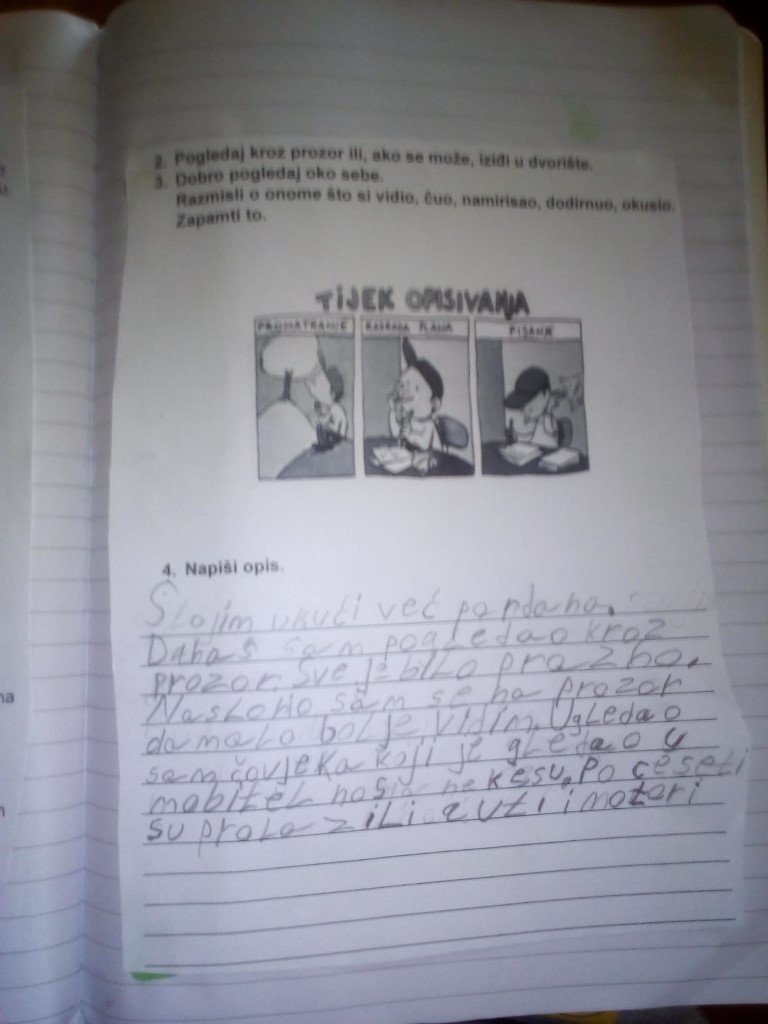 2. Pogledaj kroz prozor ili, ako se može, iziđi u dvorište.
3. Dobro pogledaj oko sebe.
Razmisli o onome što si vidio, čuo, namirisao, dodirnuo, okusio.
Zapamti to.
TIJEK OPISIVANJA
PROMATRANJE
RAZRADA PLANA
PISANJE
4. Napiši opis.
Stojim u kući već par dana.
Danas sam pogledao kroz
prozor. Sve je bilo prazno.
Naslonio sam se na prozor
da malo bolje vidim. Ugledao
sam čovjeka koji je gledao u
mobitel kesu. Po cesti
su prolazili auti i motori
na